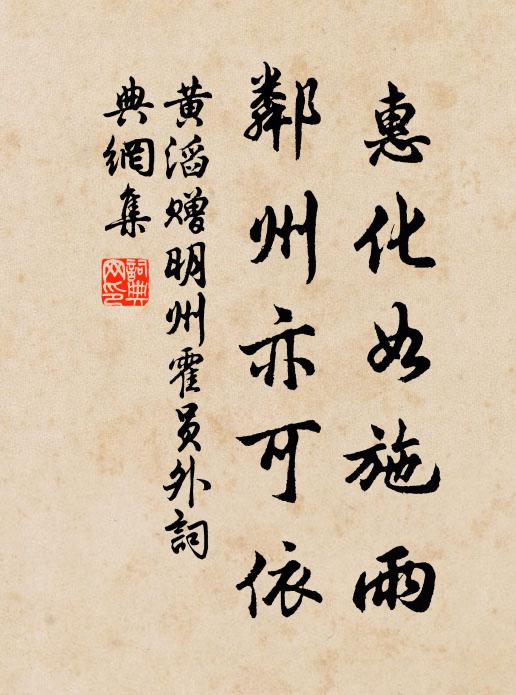 惠化如施雨
鄰州亦可依
黄滔赠明州霍员外詞
典網集
詞典网印